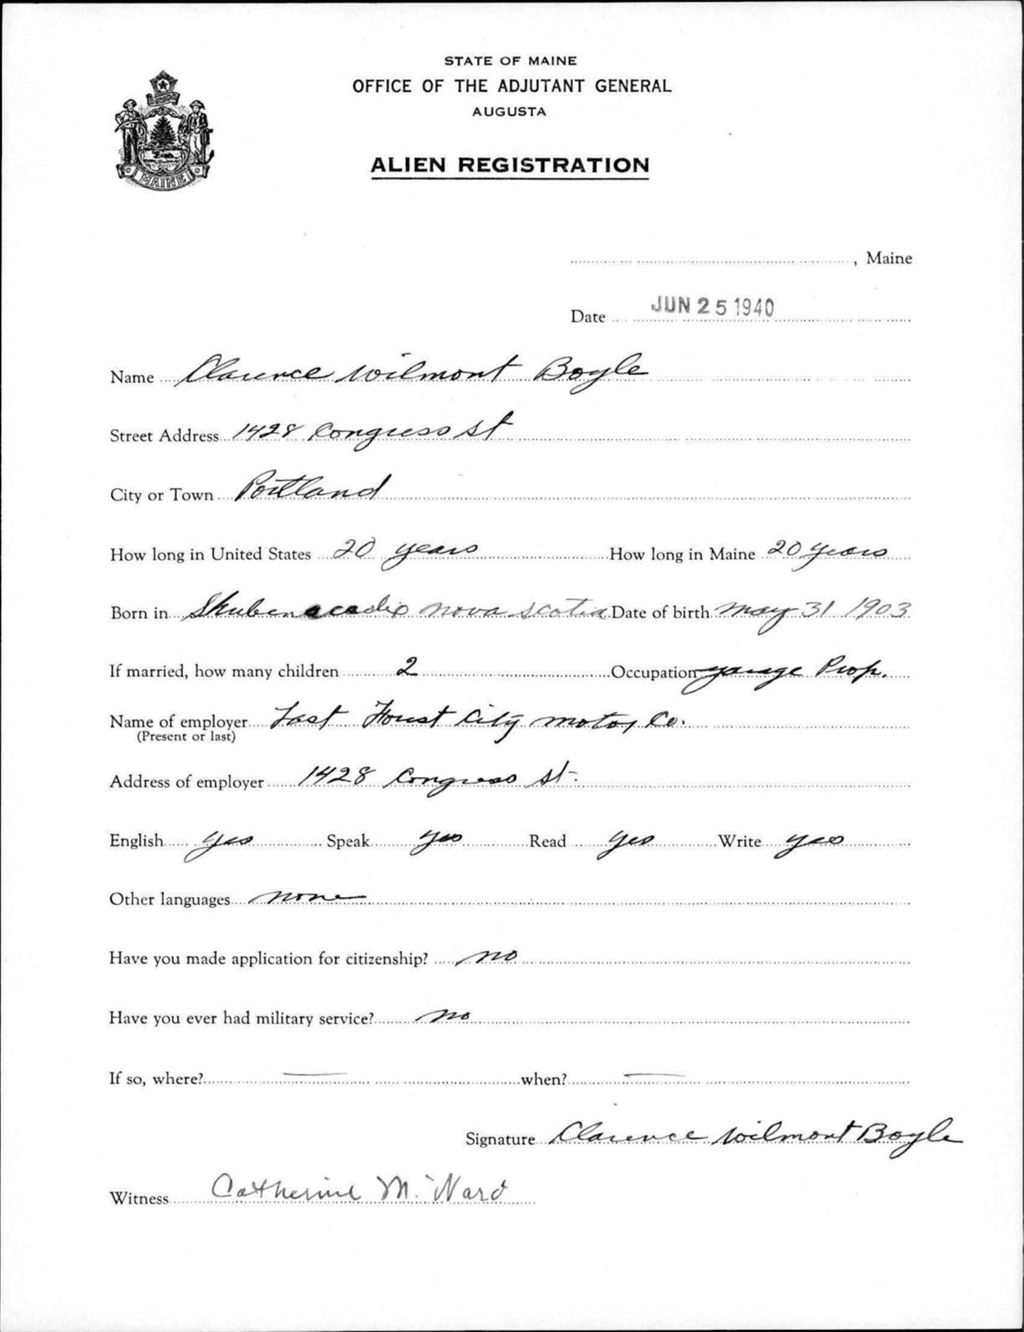 STATE OF MAINE
OFFICE OF THE ADJUTANT GENERAL
AUGUSTA
ALIEN REGISTRATION
MAINE
, Maine
Date JUN 25 1940
Name Clarence Wilmont Boyle
Street Address 1428 Congress St
City or Town Portland
How long in United States 20 years How long in Maine 20 years
Born in Shubenacadie Nova Scotia Date of birth May 31 1903
If married, how many children 2 Occupation garage Prop.
Name of employer Last Forest City Motor Co.
(Present or last)
Address of employer 1428 Congress St.
English yes Speak yes Read yes Write yes
Other languages none
Have you made application for citizenship? no
Have you ever had military service? no
If so, where? — when? —
Signature Clarence Wilmont Boyle
Witness Catherine M. Ward